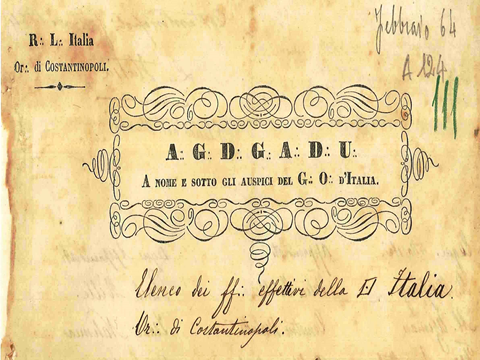 R∴ L∴ Italia
Or∴ di COSTANTINOPOLI.
Febbraio 64
A 124
III
A∴ G∴ D∴ G∴ A∴ D∴ U∴
A NOME E SOTTO GLI AUSPICI DEL G∴ O∴ D'ITALIA.
Elenco dei ff∴ effettivi della □ Italia.
Or∴ di Costantinopoli.